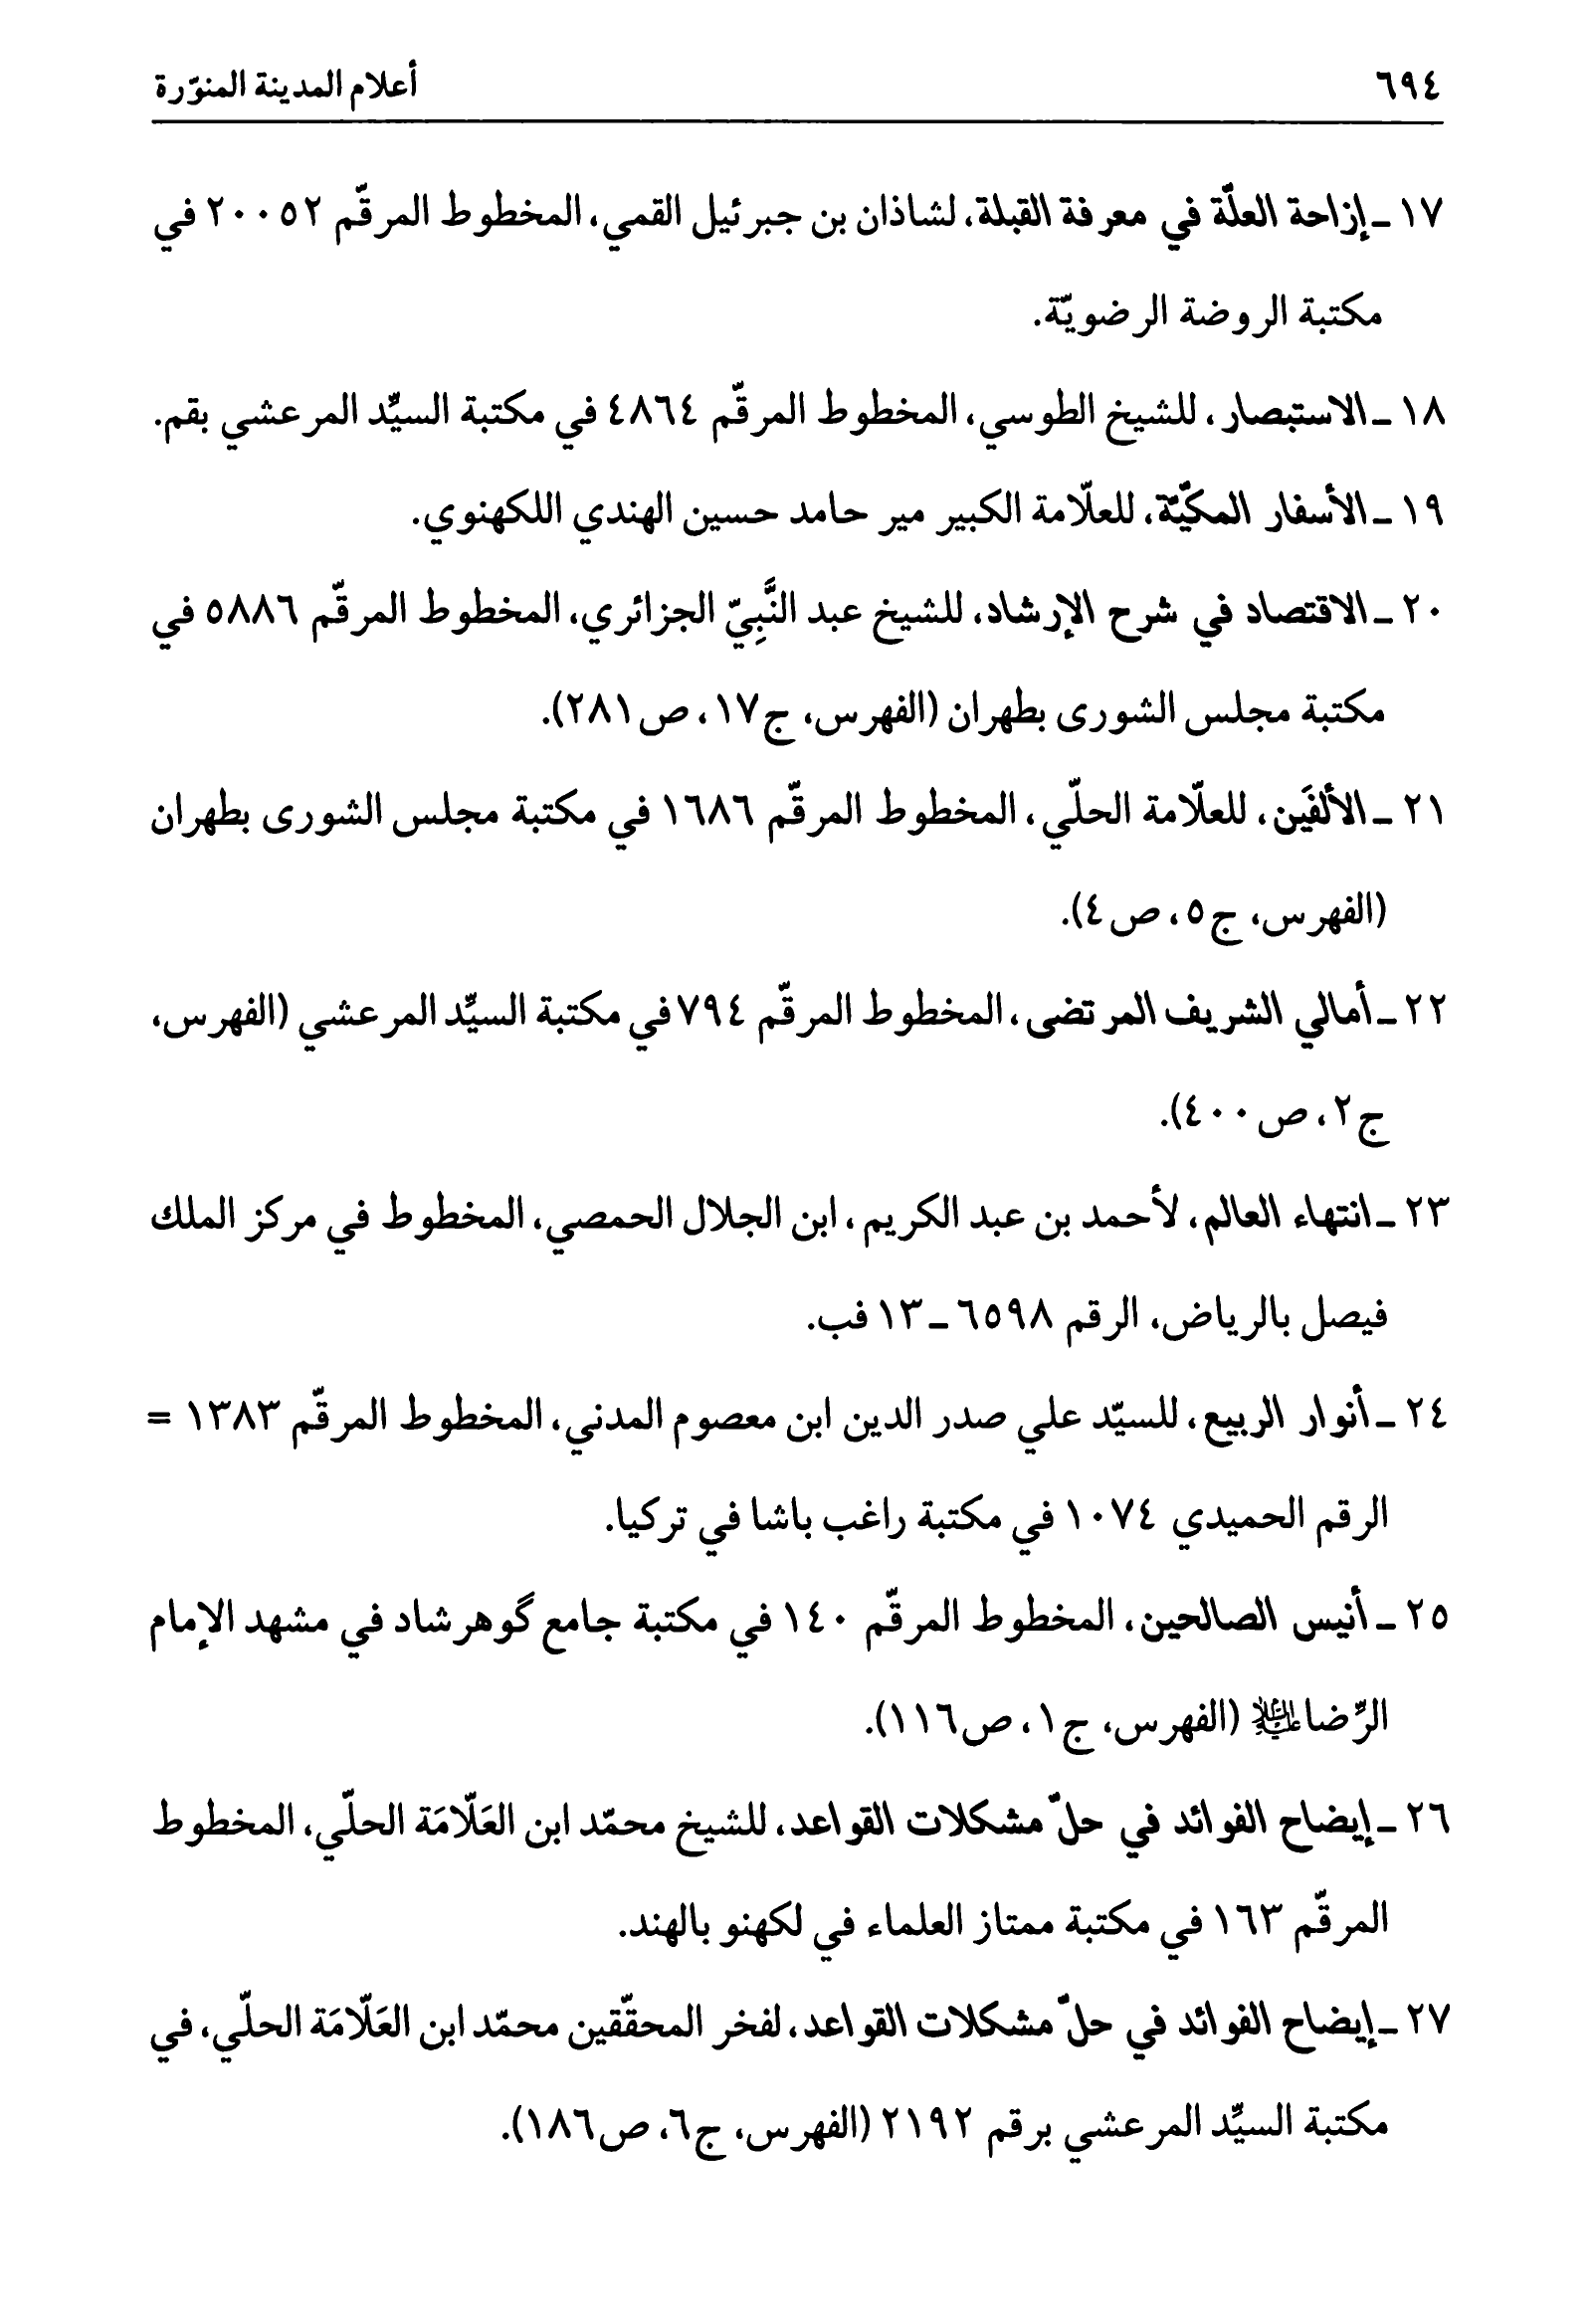 ٦٩٤ أعلام المدينة المنوّرة
١٧ ـ إزاحة العلّة في معرفة القبلة، لشاذان بن جبرئيل القمي، المخطوط المرقّم ٢٠٠٥٢ في
مكتبة الروضة الرضويّة.
١٨ ـ الاستبصار، للشيخ الطوسي، المخطوط المرقّم ٤٨٦٤ في مكتبة السيِّد المرعشي بقم.
١٩ ـ الأسفار المكيّة، للعلّامة الكبير مير حامد حسين الهندي اللكهنوي.
٢٠ ـ الاقتصاد في شرح الإرشاد، للشيخ عبد النَّبِيّ الجزائري، المخطوط المرقّم ٥٨٨٦ في
مكتبة مجلس الشورى بطهران (الفهرس، ج١٧، ص٢٨١).
٢١ ـ الألفَين، للعلّامة الحلّي، المخطوط المرقّم ١٦٨٦ في مكتبة مجلس الشورى بطهران
(الفهرس، ج٥، ص٤).
٢٢ ـ أمالي الشريف المرتضى، المخطوط المرقّم ٧٩٤ في مكتبة السيِّد المرعشي (الفهرس،
ج٢، ص٤٠٠).
٢٣ ـ انتهاء العالم، لأحمد بن عبد الكريم، ابن الجلال الحمصي، المخطوط في مركز الملك
فيصل بالرياض، الرقم ٦٥٩٨ ـ ١٣ فب.
٢٤ ـ أنوار الربيع، للسيّد علي صدر الدين ابن معصوم المدني، المخطوط المرقّم ١٣٨٣ =
الرقم الحميدي ١٠٧٤ في مكتبة راغب باشا في تركيا.
٢٥ ـ أنيس الصالحين، المخطوط المرقّم ١٤٠ في مكتبة جامع گوهرشاد في مشهد الإمام
الرِّضا عليه السلام (الفهرس، ج١، ص١١٦).
٢٦ ـ إيضاح الفوائد في حلّ مشكلات القواعد، للشيخ محمّد ابن العَلّامَة الحلّي، المخطوط
المرقّم ١٦٣ في مكتبة ممتاز العلماء في لكهنو بالهند.
٢٧ ـ إيضاح الفوائد في حلّ مشكلات القواعد، لفخر المحقّقين محمّد ابن العَلّامَة الحلّي، في
مكتبة السيِّد المرعشي برقم ٢١٩٢ (الفهرس، ج٦، ص١٨٦).